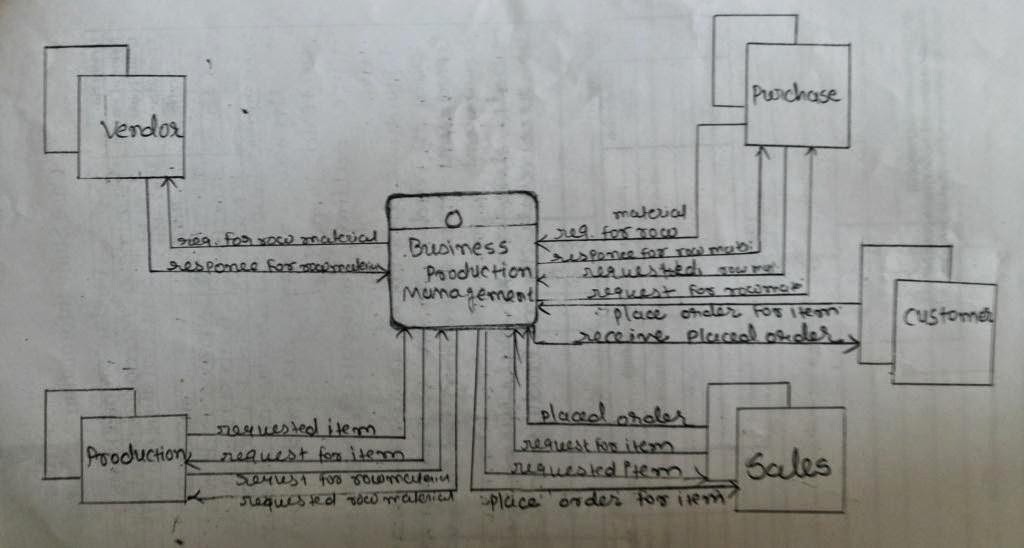 Vendor
Purchase
req. for row material
responce for row material
0
Business
Production
Management
material
req. for row
responce for row mati.
requested row ma
request for row mat
place order for item
receive placed order
Customer
Production
requested item
request for item
request for row material
requested row material
placed order
request for item
requested item
place order for item
Sales